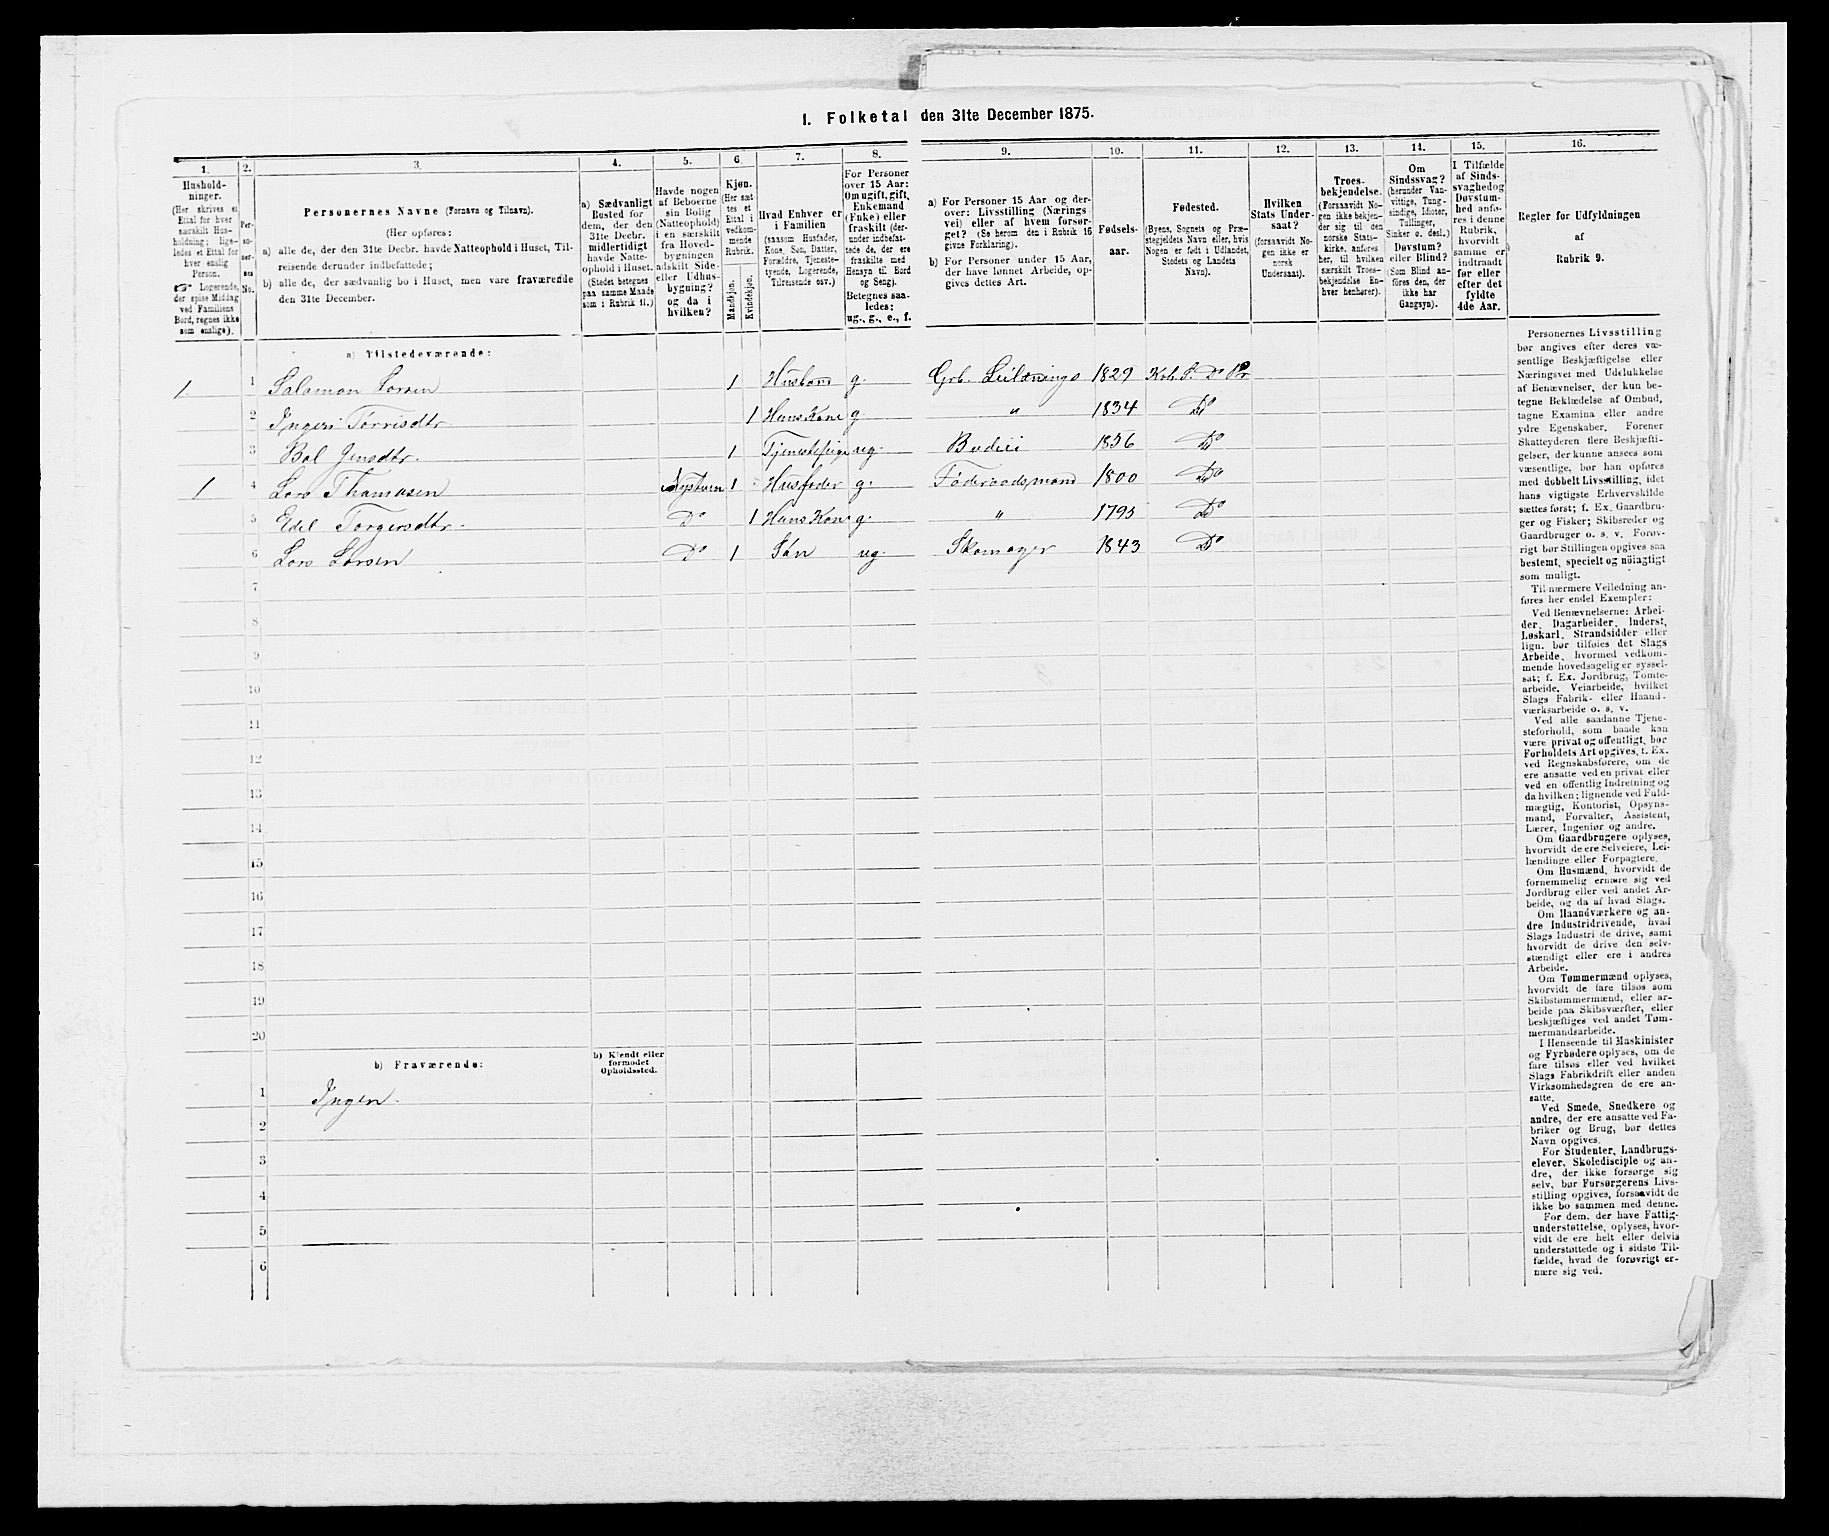 1. Folketal den 31te December 1875.
1. 2. 3. 4. 5. 6. 7. 8. 9. 10. 11. 12. 13. 14. 15. 16.
Hushold-
ninger.
(Her skrives et
Ettal for hver
særskilt Hus-
holdning; lige-
ledes et Ettal for
hver enslig
Person.
☞ Logerende,
der spise Middag
ved Familiens
Bord, regnes ikke
som enslige).
Per-
so-
ner-
nes
No.
Personernes Navne (Fornavn og Tilnavn).
(Her opføres:
a) alle de, der den 31te Decbr. havde Natteophold i Huset, Til-
reisende derunder indbefattede;
b) alle de, der sædvanlig bo i Huset, men vare fraværende
den 31te December.
a) Sædvanligt
Bosted for
dem, der den
31te Decbr.
midlertidigt
havde Natte-
ophold i Huset.
(Stedet betegnes
paa samme Maade
som i Rubrik 11.)
Havde nogen
af Beboerne
sin Bolig
(Natteophold)
i en særskilt
fra Hoved-
bygningen
adskilt Side-
eller Udhus-
bygning?
og da i
hvilken?
Kjøn.
(Her sæt-
tes et
Ettal i
vedkom-
mende
Rubrik.
Mandkjøn.
Kvindekjøn.
Hvad Enhver er
i Familien
(saasom Husfader,
Kone, Søn, Datter,
Forældre, Tjeneste-
tyende, Logerende,
Tilreisende osv.)
For Personer
over 15 Aar:
Om ugift, gift,
Enkemand
(Enke) eller
fraskilt (der-
under indbefat-
tede de, der ere
fraskilte med
Hensyn til Bord
og Seng).
Betegnes saa-
ledes:
ug., g., e., f.
a) For Personer 15 Aar og der-
over: Livsstilling (Nærings
vei) eller af hvem forsør-
get? (Se herom den i Rubrik 16
givne Forklaring).
b) For Personer under 15 Aar,
der have lønnet Arbeide, op-
gives dettes Art.
Fødsels-
aar.
Fødested.
(Byens, Sognets og Præ-
stegjeldets Navn eller, hvis
Nogen er født i Udlandet,
Stedets og Landets
Navn).
Hvilken
Stats Under-
saat?
(forsaavidt No-
gen ikke er
norsk
Undersaat).
Troes-
bekjendelse.
(Forsaavidt No-
gen ikke bekjen-
der sig til den
norske Stats-
kirke, anføres
her, til hvilken
særskilt Troes-
bekjendelse En-
hver henhører).
Om
Sindssvag?
(herunder Van-
vittige, Tung-
sindige, Idioter,
Tullinger,
Sinker o. desl.)
Døvstum?
eller Blind?
(Som Blind an-
føres den, der
ikke har
Gangsyn).
I Tilfælde
af Sinds-
svaghed og
Døvstum-
hed anfø-
res i denne
Rubrik,
hvorvidt
samme er
indtraadt
før eller
efter det
fyldte
4de Aar.
Regler før Udfyldningen
af
Rubrik 9.
a) Tilstedeværende:
1. 1 Salamon Larsen 1 Husband g. Grb. Leilænings 1829 Kob. S. Do Pr
2 Ingeri Torrisdtr. 1 Hans Kone g. " 1834 Do
3 Bol Jensdtr. 1 Tjenestepige ug. Budeie 1856 Do
1 4 Lars Thomasen Nystuen 1 Husfader g. Föderaadsmand 1800 Do
5 Edel Torgersdtr. Do 1 Hans Kone g. " 1795 Do
6 Lars Larsen Do 1 Søn ug. Skomager 1843 Do
7
8
9
10
11
12
13
14
15
16
17
18
19
20
b) Fraværende:
b) Kjendt eller
formodet
Opholdssted.
1 Ingen.
2
3
4
5
6
Personernes Livsstilling
bør angives efter deres væ-
sentlige Beskjæftigelse eller
Næringsvei med Udelukkelse
af Benævnelser, der kun be-
tegne Beklædelse af Ombud,
tagne Examina eller andre
ydre Egenskaber. Forener
Skatteyderen flere Beskjæfti-
gelser, der kunne ansees som
væsentlige, bør han opføres
med dobbelt Livsstilling, idet
hans vigtigste Erhvervskilde
sættes først; f. Ex. Gaardbru-
ger og Fisker; Skibsreder og
Gaardbruger o. s. v. Forøv-
rigt bør Stillingen opgives saa
bestemt, specielt og nöiagtigt
som muligt.
Til nærmere Veiledning an-
føres her endel Exempler:
Ved Benævnelserne: Arbei-
der, Dagarbeider, Inderst,
Løskarl, Strandsidder eller
lign. bør tilføies det Slags
Arbeide, hvormed vedkom-
mende hovedsagelig er syssel-
sat; f. Ex. Jordbrug, Tomte-
arbeide, Veiarbeide, hvilket
Slags Fabrik- eller Haand-
værksarbeide o. s. v.
Ved alle saadanne Tjene-
steforhold, som baade kan
være privat og offentligt, bør
Forholdets Art opgives, f. Ex.
ved Regnskabsførere, om de
ere ansatte ved en privat eller
ved en offentlig Indretning og
da hvilken; lignende ved Fuld-
mægtig, Kontorist, Opsyns-
mand, Forvalter, Assistent,
Lærer, Ingeniør og andre.
Om Gaardbrugere oplyses,
hvorvidt de ere Selveiere, Lei-
lændinge eller Forpagtere.
Om Husmænd, hvorvidt de
fornemmelig ernære sig ved
Jordbrug eller ved andet Ar-
beide, og da af hvad Slags.
Om Haandværkere og an-
dre Industridrivende, hvad
Slags Industri de drive, samt
hvorvidt de drive den selv-
stændigt eller ere i andres
Arbeide.
Om Tømmermænd oplyses,
hvorvidt de fare tilsøs som
Skibstømmermænd, eller ar-
beide paa Skibsværfter, eller
beskjæftiges ved andet Tøm-
mermandsarbeide.
I Henseende til Maskinister
og Fyrbødere oplyses, om de
fare tilsøs eller ved hvilket
Slags Fabrikdrift eller anden
Virksomhedsgren de ere an-
satte.
Ved Smede, Snedkere og
andre, der ere ansatte ved Fa-
briker og Brug, bør dettes
Navn opgives.
For Studenter, Landbrugs-
elever, Skoledisciple og an-
dre, der ikke forsørge sig
selv, bør Forsørgerens Livs-
stilling opgives, forsaavidt de
ikke bo sammen med denne.
For dem, der have Fattig-
understøttelse, oplyses, hvor-
vidt de ere helt eller delvis
understøttede og i sidste Til-
fælde, hvad de forøvrigt er-
nære sig ved.